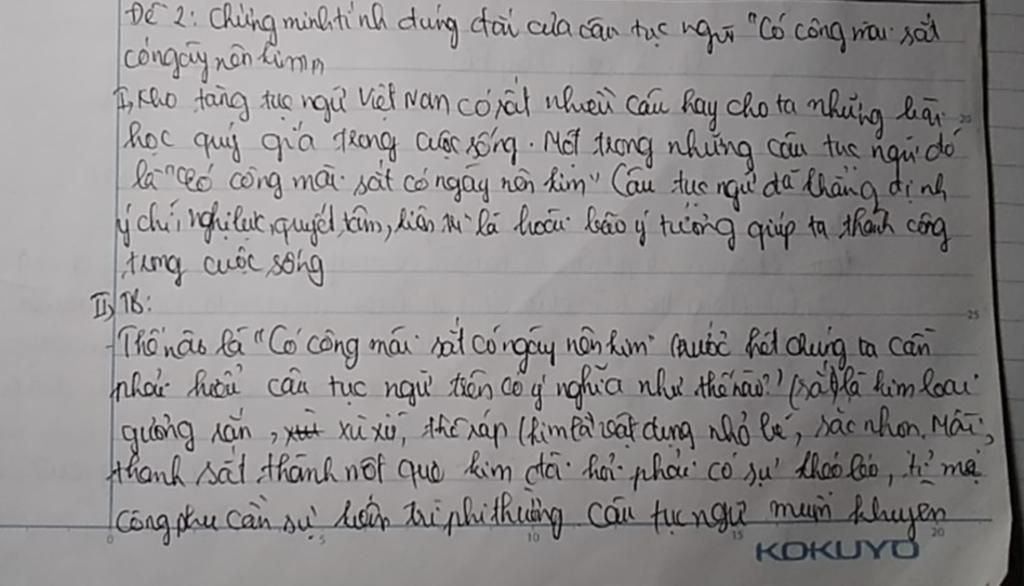 Đề 2: Chứng minh tính đúng đắn của câu tục ngữ "Có công mài sắt
có ngày nên kim"
I, Kho tàng tục ngữ Việt Nam có rất nhiều câu hay cho ta những bài
học quý giá trong cuộc sống. Một trong những câu tục ngữ đó
là "Có công mài sắt có ngày nên kim" Câu tục ngữ đã khẳng định
ý chí, nghị lực, quyết tâm, kiên trì là hoài bão ý tưởng giúp ta thành công
trong cuộc sống
II, TB:
Thế nào là "Có công mài sắt có ngày nên kim" trước hết chúng ta cần
phải hiểu câu tục ngữ trên có ý nghĩa như thế nào? (sắt) là kim loại
cứng rắn, xù xì, thô ráp (kim là vật dụng nhỏ bé, sắc nhọn. Mài
thanh sắt thành một que kim đòi hỏi phải có sự khéo léo, tỉ mẻ
công phu cần sự kiên trì phi thường câu tục ngữ muốn khuyên
0 5 10 15 20
25
KOKUYO